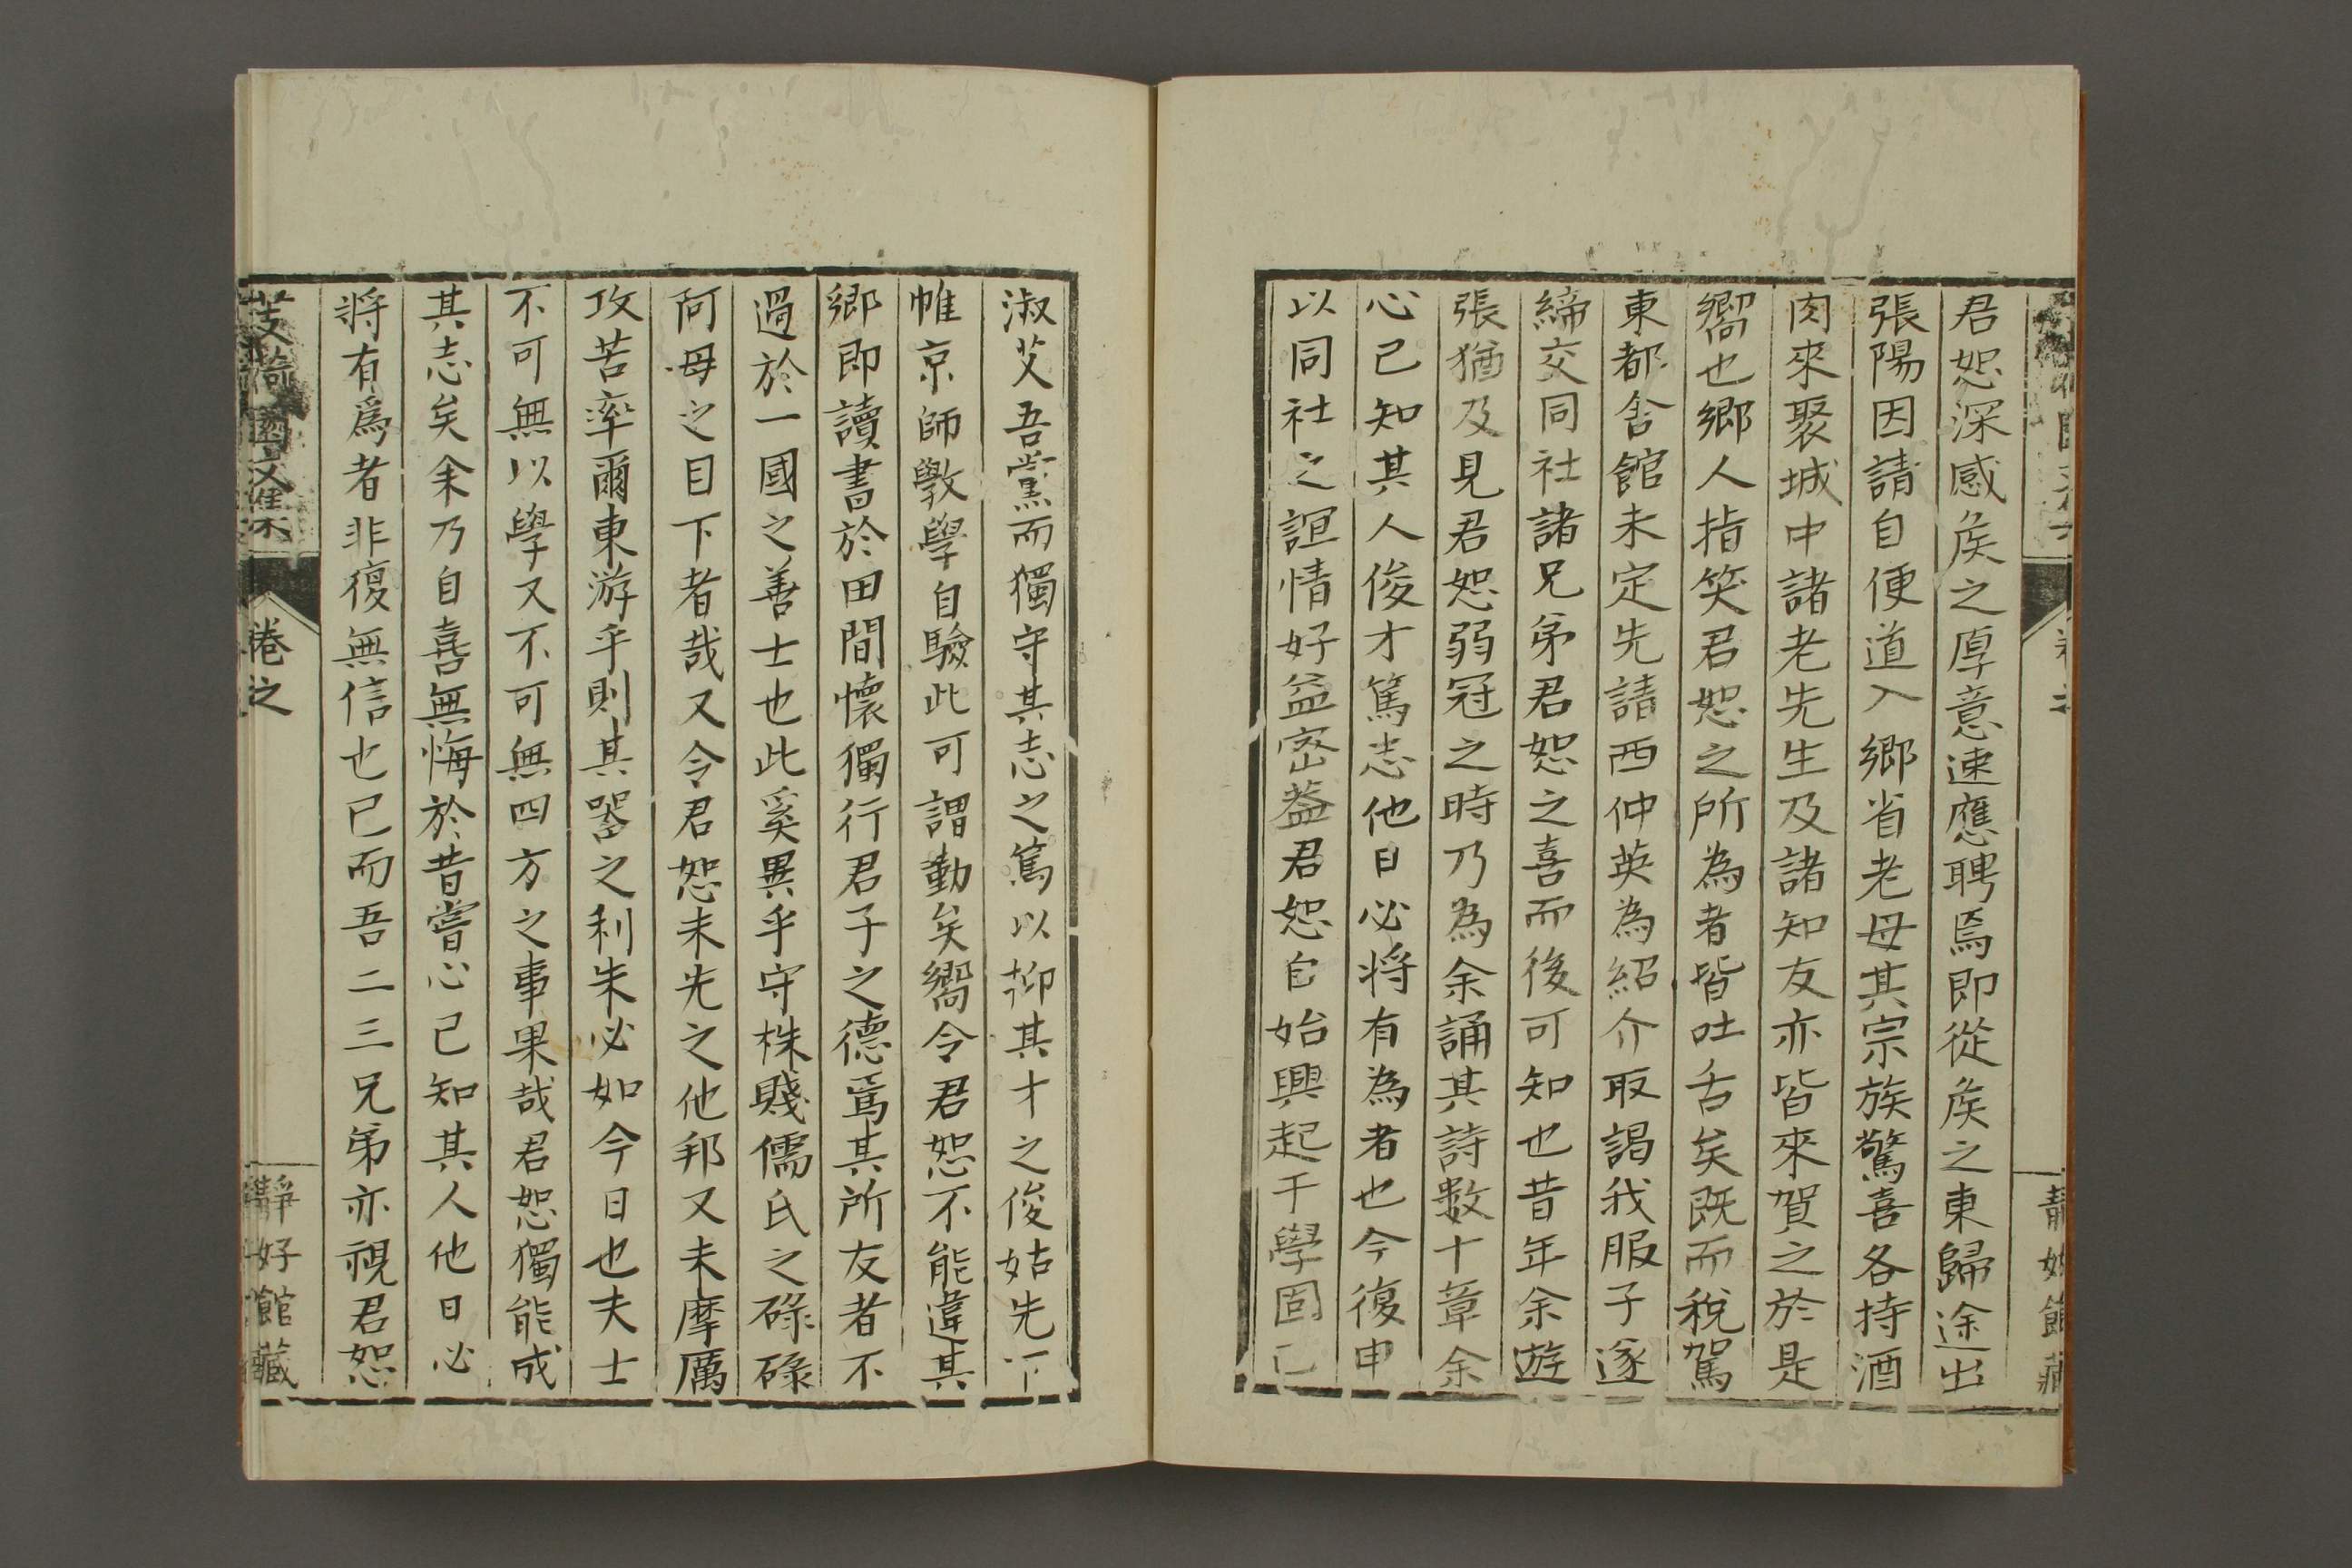 君恕深感矦之厚意速應聘焉即從矦之東歸途出
張陽因請自便道入鄉省老母其宗族驚喜各持酒
肉來聚城中諸老先生及諸知友亦皆來賀之於是
嚮也鄉人指笑君恕之所為者皆吐舌矣既而稅駕
東都舍館未定先請西仲英為紹介取謁我服子遂
締交同社諸兄弟君恕之喜而後可知也昔年余遊
張猶及見君恕弱冠之時乃為余誦其詩数十章余
心已知其人俊才篤志他日必将有為者也今復申
以同社之誼情好益密葢君恕自始興起于學固已
淑艾吾黨而獨守其志之篤以抑其才之俊姑先下
帷京師斆學自驗此可謂勤矣嚮令君恕不能違其
鄉即讀書於田間懷獨行君子之德焉其所友者不
過於一國之善士也此奚異乎守株賤儒氏之碌碌
阿母之目下者哉又令君恕未先之他邦又未摩厲
攻苦率爾東游乎則其器之利朱必如今日也夫士
不可無以學又不可無四方之事果哉君恕獨能成
其志矣余乃自喜無悔於昔嘗心已知其人他日必
將有爲者非復無信也已而吾二三兄弟亦視君恕
芰荷園文集
卷之
靜好館藏